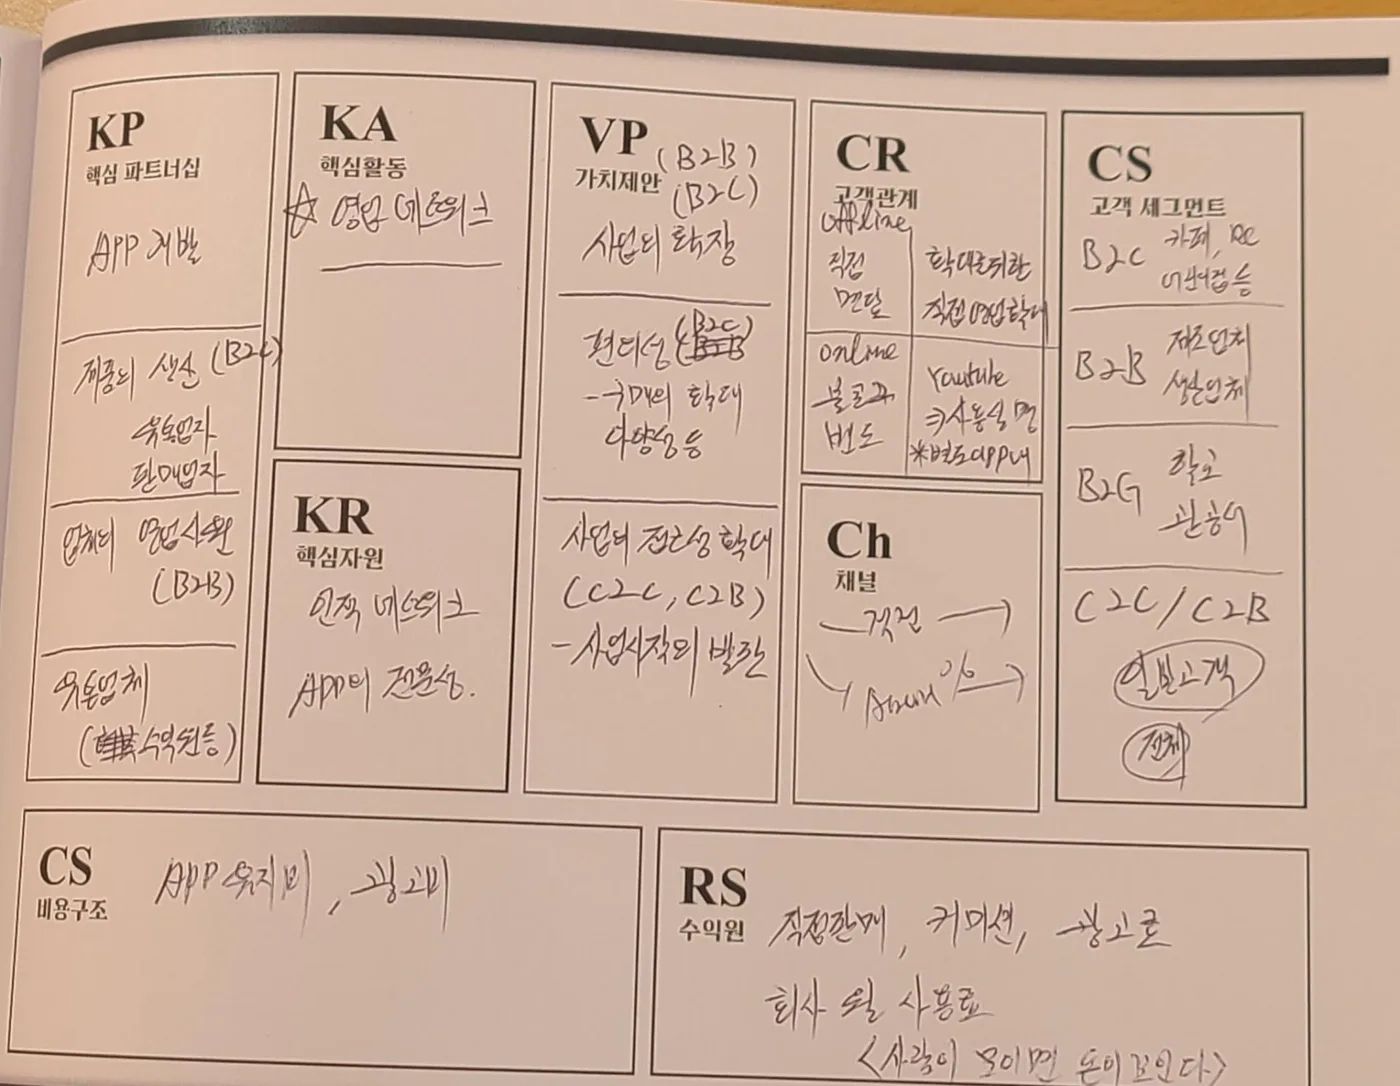 KP
핵심 파트너십
APP 개발
제품의 생산 (B2C)
유통업자
판매업자
업체의 영업사원
(B2B)
유통업체
(수익원등)
KA
핵심활동
☆ 영업 네트워크
KR
핵심자원
인적 네트워크
APP의 전문성.
VP (B2B)
가치제안 (B2C)
사업의 확장
편의성 (B2C)
- 구매의 확대
다양성 등
사업의 접근성 확대
(C2C, C2B)
- 사업시작의 발판
CR
고객관계
offline
직접
면담
확대를위한
직접영업확대
online
별도
Youtube
사용설명
※별도app내
Ch
채널
직접 →
% →
CS
고객 세그먼트
B2C 카페,
B2B 제조업체
생산업체
B2G 학교
관공서
C2C / C2B
일반고객
전체
CS
비용구조
APP 유지비, 광고비
RS
수익원
직접판매, 커미션, 광고료
회사 월 사용료
<사람이 모이면 돈이 모인다>